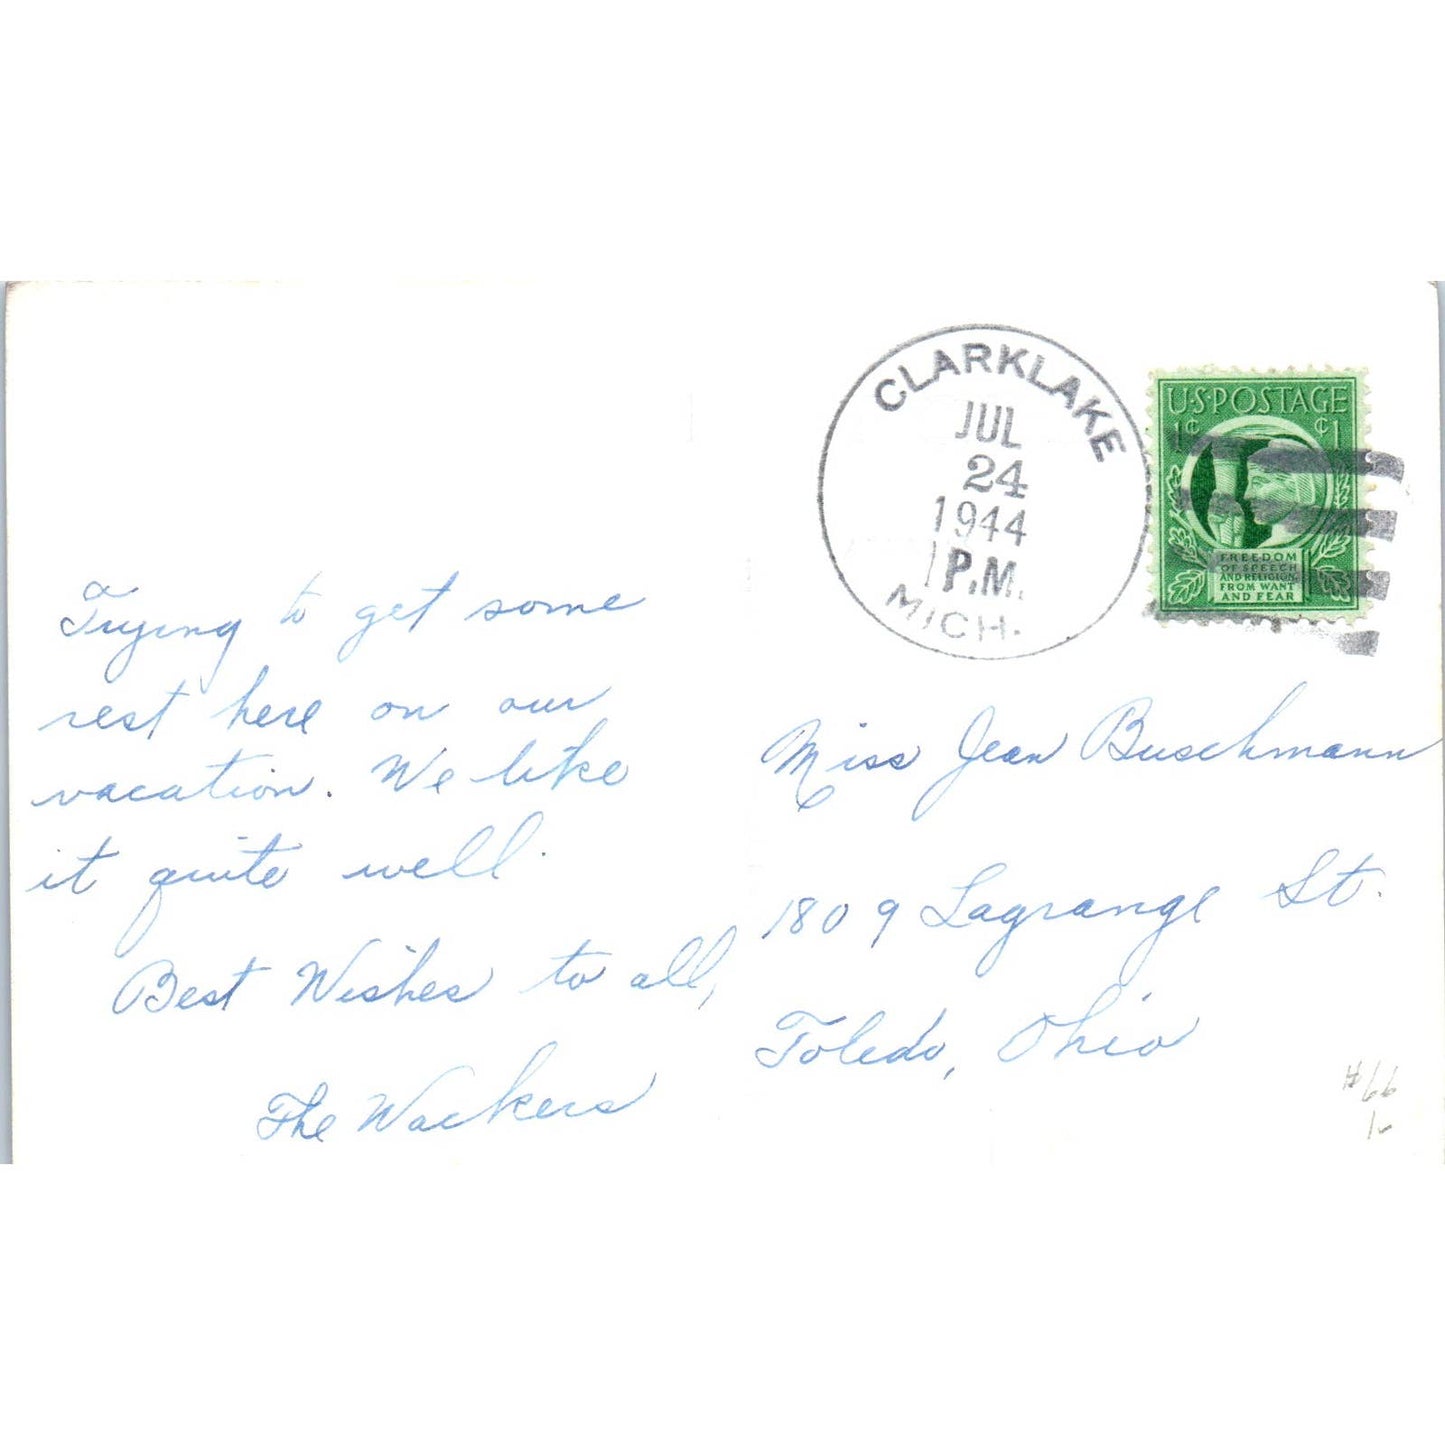 CLARKLAKE
JUL
24
1944
1 P.M.
MICH.
U·S·POSTAGE
1¢ ¢1
FREEDOM
OF SPEECH
AND RELIGION,
FROM WANT
AND FEAR
Trying to get some
rest here on our
vacation. We like
it quite well.
Best Wishes to all,
The Wackers
Miss Jean Buschmann
1809 Lagrange St.
Toledo, Ohio
#66
1-